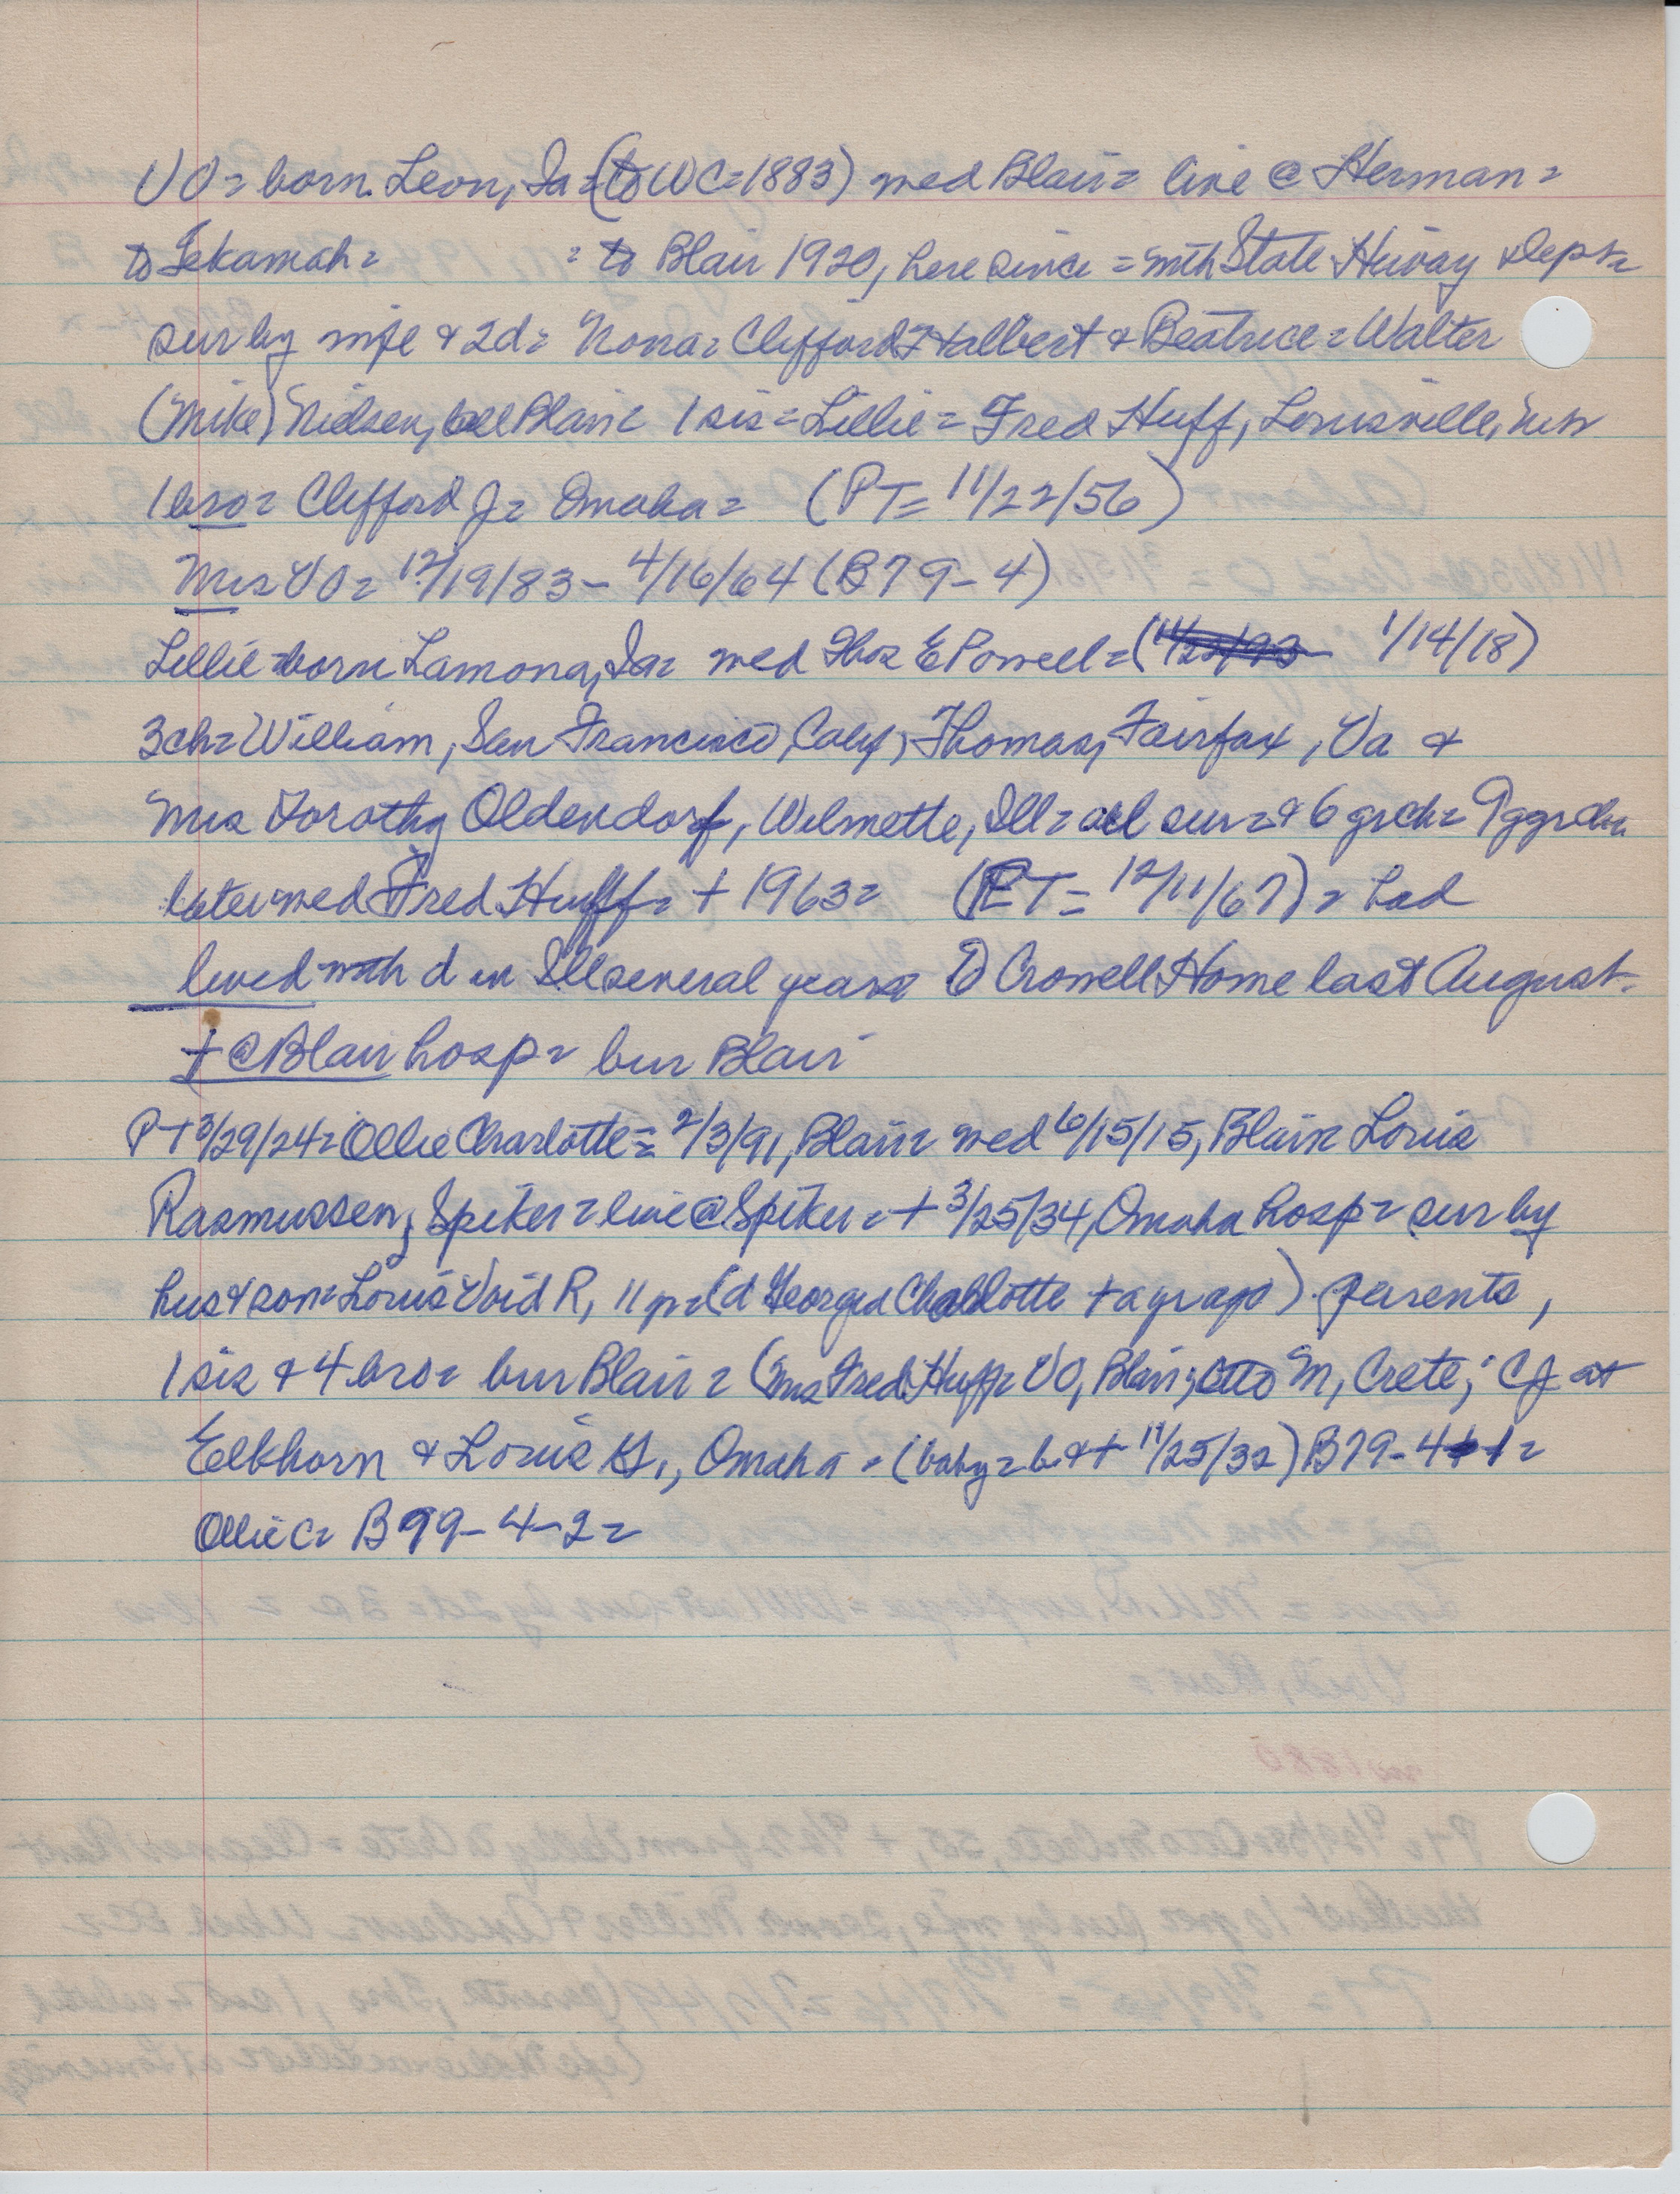 VO = born Leon, Ia = (to WC = 1883) med Blair = live @ Herman =
to Tekamah = = to Blair 1920, here since = with State Hiway Dept =
sur by wife & 2d = Nona = Clifford Halbert & Beatrice = Walter
(Mike) Nielsen, all Blair = 1 sis = Lillie = Fred Huff, Louisville,
1 bro = Clifford J = Omaha = (PT = 11/22/56)
Mrs VO = 12/19/83 - 4/16/64 (B79-4)
Lillie = born Lamona, Ia = med Thos E Powell = ( 1/14/18)
3ch = William, San Francisco, Calif, Thomas, Fairfax, Va &
Mrs Dorothy Oldendorf, Wilmette, Ill = all sur = & 6 grch = 9 ggrch =
later med Fred Huff = + 1963 = (PT = 12/11/67) = had
lived with d in Ill several years = to Crowell Home last August.
+ @ Blair hosp = bur Blair
PT 3/29/24 = Ollie Charlotte = 2/3/91, Blair = med 6/15/15, Blair = Louis
Rasmussen, Spiker = live @ Spiker = + 3/25/34, Omaha hosp = sur by
hus & son = Louis Void R, 11 yr = (d Georgia Charlotte + a yr ago) parents,
1 sis & 4 bro = bur Blair = (Mrs Fred Huff = VO, Blair; Otto M, Crete; CJ at
Elkhorn & Louis G., Omaha = (baby = b & + 11/25/32) B79-4 =
Ollie C = B 99-4-2 =